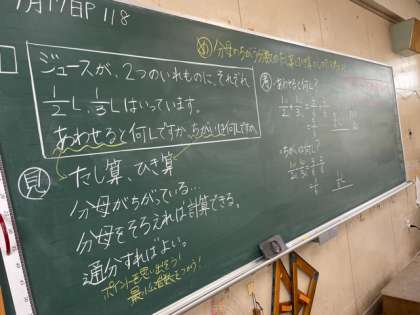 9月17日P118
め 分母がちがう分数の
1
ジュースが、2つのいれものに、それぞれ
1/2 L、1/3 Lはいっています。
あわせると何Lですか。ちがいは何Lですか。
見
たし算、ひき算
分母がちがっている…
分母をそろえれば計算できる。
通分すればよい。
ポイントを思い出そう!
最小公倍数をつかう!
考
・あわせると何L?
1/2+1/3=3/6+2/6
・ちがいは何L?
1/2-1/3=3/6-2/6